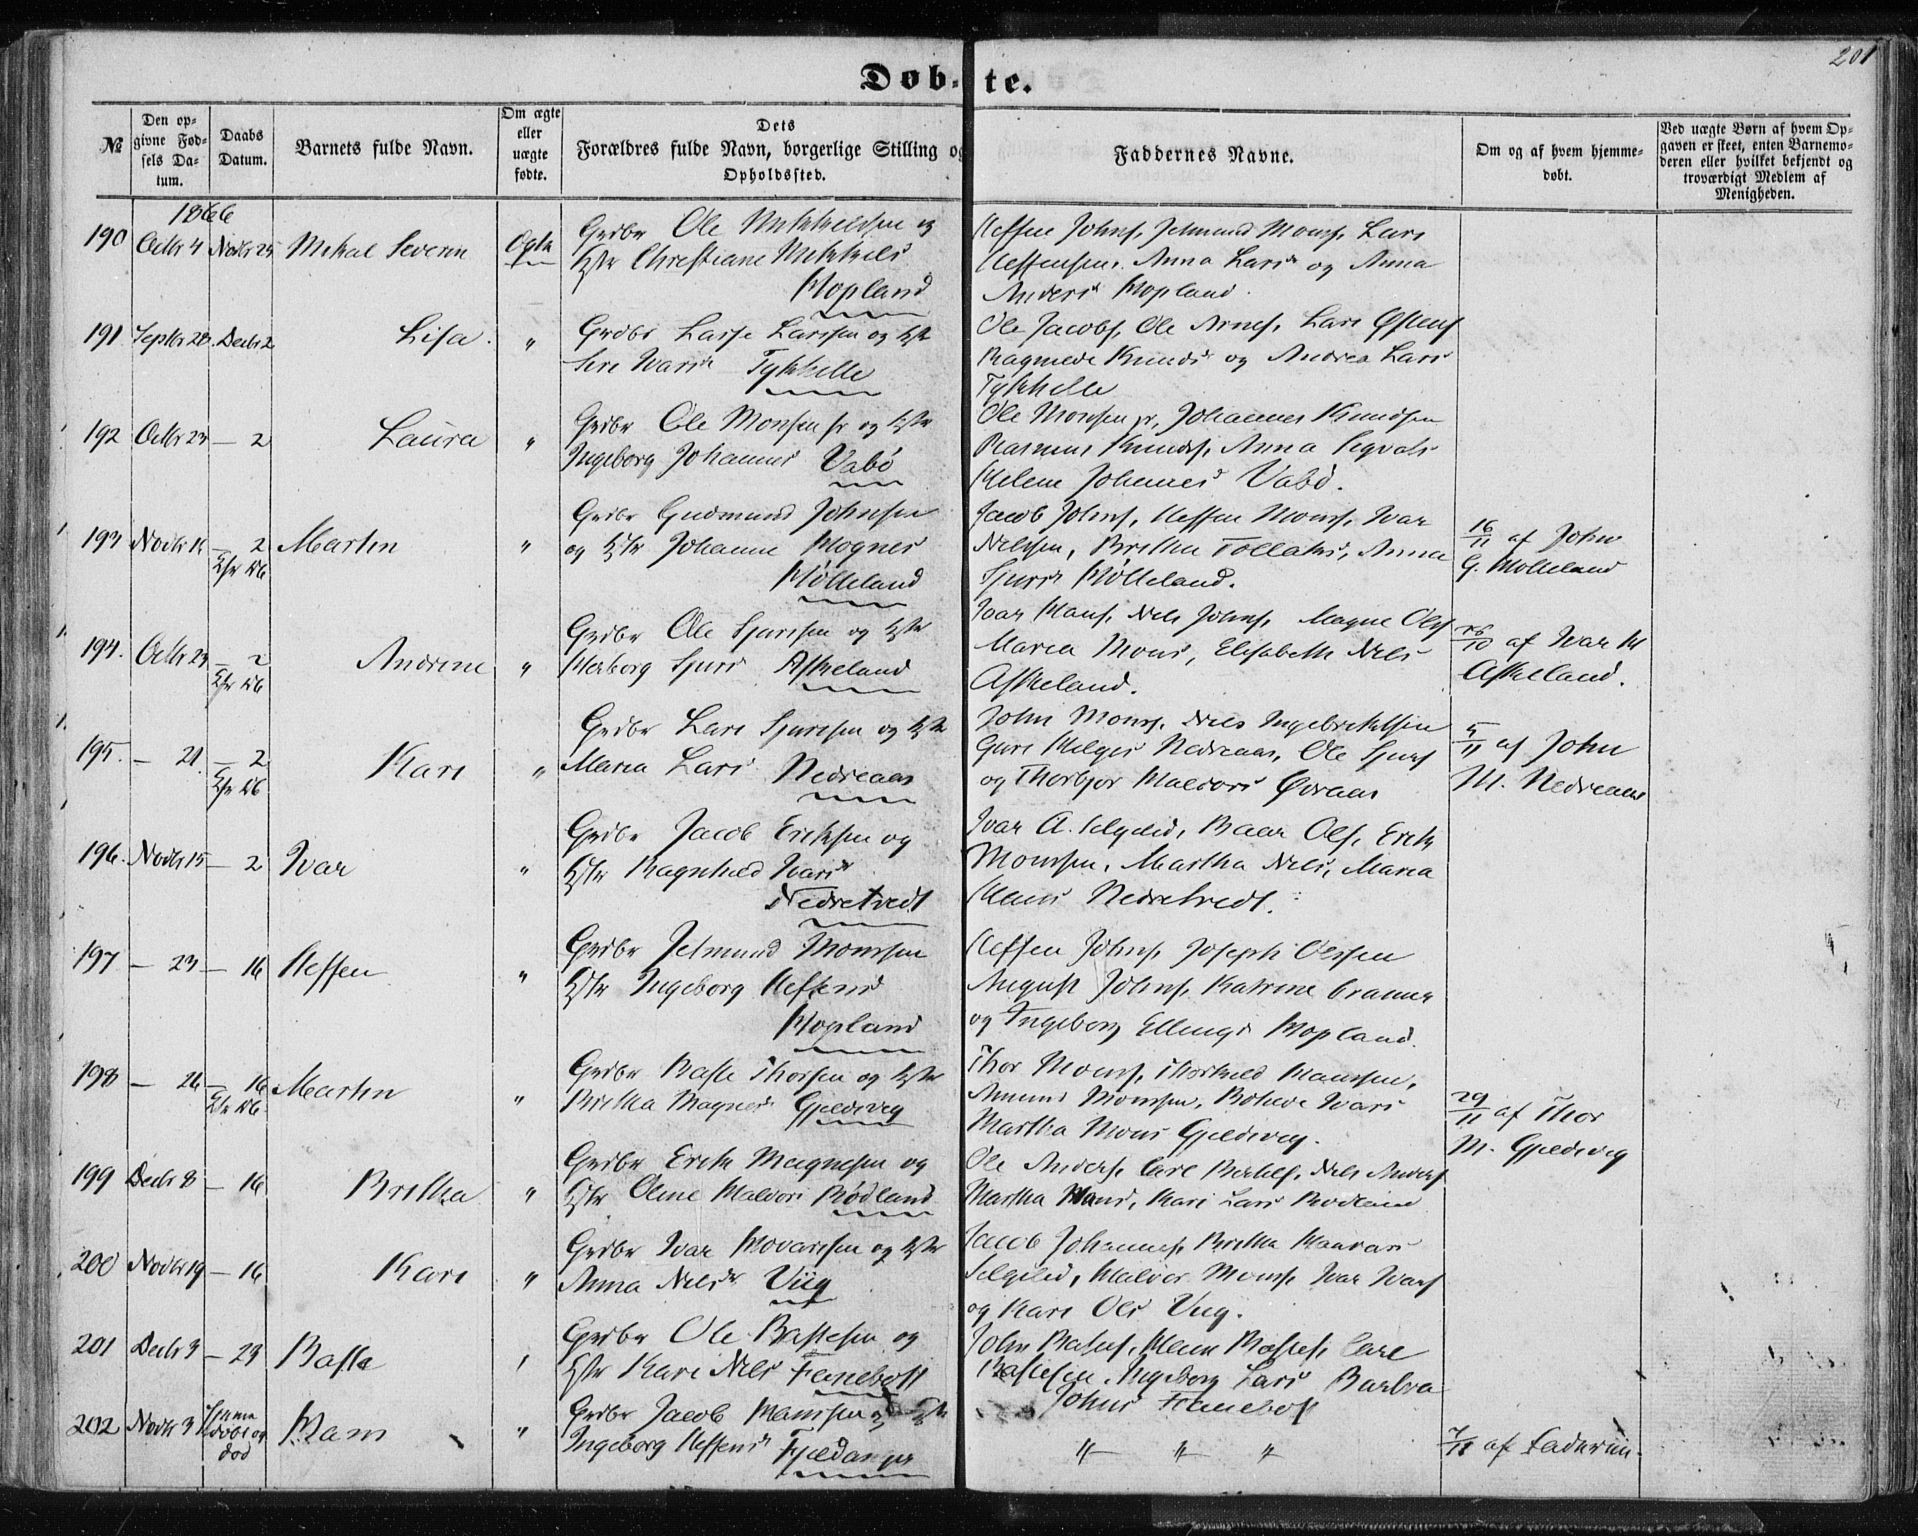 201
Døb-te.
№
Den op-
givne Fød-
sels Da-
tum.
Daabs
Datum.
Barnets fulde Navn.
Om ægte
eller
uægte
fødte.
Dets
Forældres fulde Navn, borgerlige Stilling og
Opholdssted.
Faddernes Navne.
Om og af hvem hjemme-
døbt.
Ved uægte Børn af hvem Op-
gaven er skeet, enten Barnemo-
deren eller hvilket bekjendt og
troværdigt Medlem af
Menigheden.
1866
190 Octbr 4 Novbr 25 Mikal Severin Ægte
Grdbr Ole Mikkelsen og
Hstr Christiane Mikkels
Hopland
Steffen Johns, Jetmund Mons, Lars
Steffensen, Anna Larsd og Anna
Anders Hopland.
191 Septbr 28. Decbr 2 Lisa. "
Grdbr Lasse Larssen og Hstr
Siri Ivarsd Tykkelle
Ole Jacobs, Ole Arnes, Lars Østens
Knudsd og Andrea Lars
Tykkelle
192 Octbr 23 — 2 Laura "
Grdbr Ole Monsen sr og Hstr
Ingeborg Johannes Vabø
Ole Monsen jr, Johannes Knudsen
Rasmus Knuds, Anna Sigvals
Helene Johannes Vabø.
193 — 2 Martin "
Grdbr Gudmund Johnsen
og Hstr Johanne Mognes
Mølleland
Jacob Johns, Steffen Mons, Ivar
Nilssen, Britha Tollaks, Anna
Sjursd Mølleland.
16/11 af John
G. Mølleland
194. Octbr 23 — 2 Andrine "
Grdbr Ole Sjursen og Hstr
Herborg Sjurs Askeland
Ivar Hans, Nils Johns, Magne Ols
Maria Mons, Elisabeth Nils
Askeland.
26/10 af Ivar H
Askeland.
195. — 21. — 2 Kari "
Grdbr Lars Sjursen og Hstr
Maria Lars Nedreaas
John Mons, Nils Ingebriktsen
Guri Helges Nedreaas, Ole Sjurs
og Thorbjør Haldors Øvraas
5/11 af John
M. Nedreaas
196. Novbr 15 — 2 Ivar "
Grdbr Jacob Eriksen og
Hstr Ragnhild Ivarsd
Nedretvedt
Ivar A. Selgelid, Baar Ols, Erik
Monsen, Martha Nils, Maria
Hans Nedretvedt.
197 — 23 — 16 Steffen "
Grdbr Jetmund Monsen
Hstr Ingeborg Steffens
Hopland
Steffen Johns, Joseph Olsen
August Johns, Katrine
og Ingeborg Ellingsd Hopland.
198 — 26 — 16 Martin "
Grdbr Baste Thorsen og Hstr
Britha Magnes Gjeldevig
Thor Mons, Thorkild Hanssen,
Amund Monsen, Ivars
Martha Mons Gjeldevig.
29/11 af Thor
M. Gjeldevig
199 Decbr 8 — 16 Britha "
Grdbr Erik Magnesen og
Hstr Oline Haldors Rødland
Ole Anders, Carl, Nils Anders
Martha Hans, Kari Lars Rødland
200 Novbr 19 — 16 Kari "
Grdbr Ivar Hovarsen og Hstr
Anna Nilsdr Viig
Jacob Johannes, Britha
Selgelid, Haldor Mons, Ivar Ivars
og Kari Ols Viig.
201 Decbr 3 — 23 Baste
Grdbr Ole Bastesen og
Hstr Kari Nils Fanebost
John, Hans Bastes, Carl
Bastesen, Ingeborg Lars Barbra
Johns Fanebost
202 Novbr 3 Hjemme
døbt og
død "
Grdbr Jacob Hanssen og Hstr
Ingeborg Steffensd Fjeldanger
" " "
7/11 af Faderen.